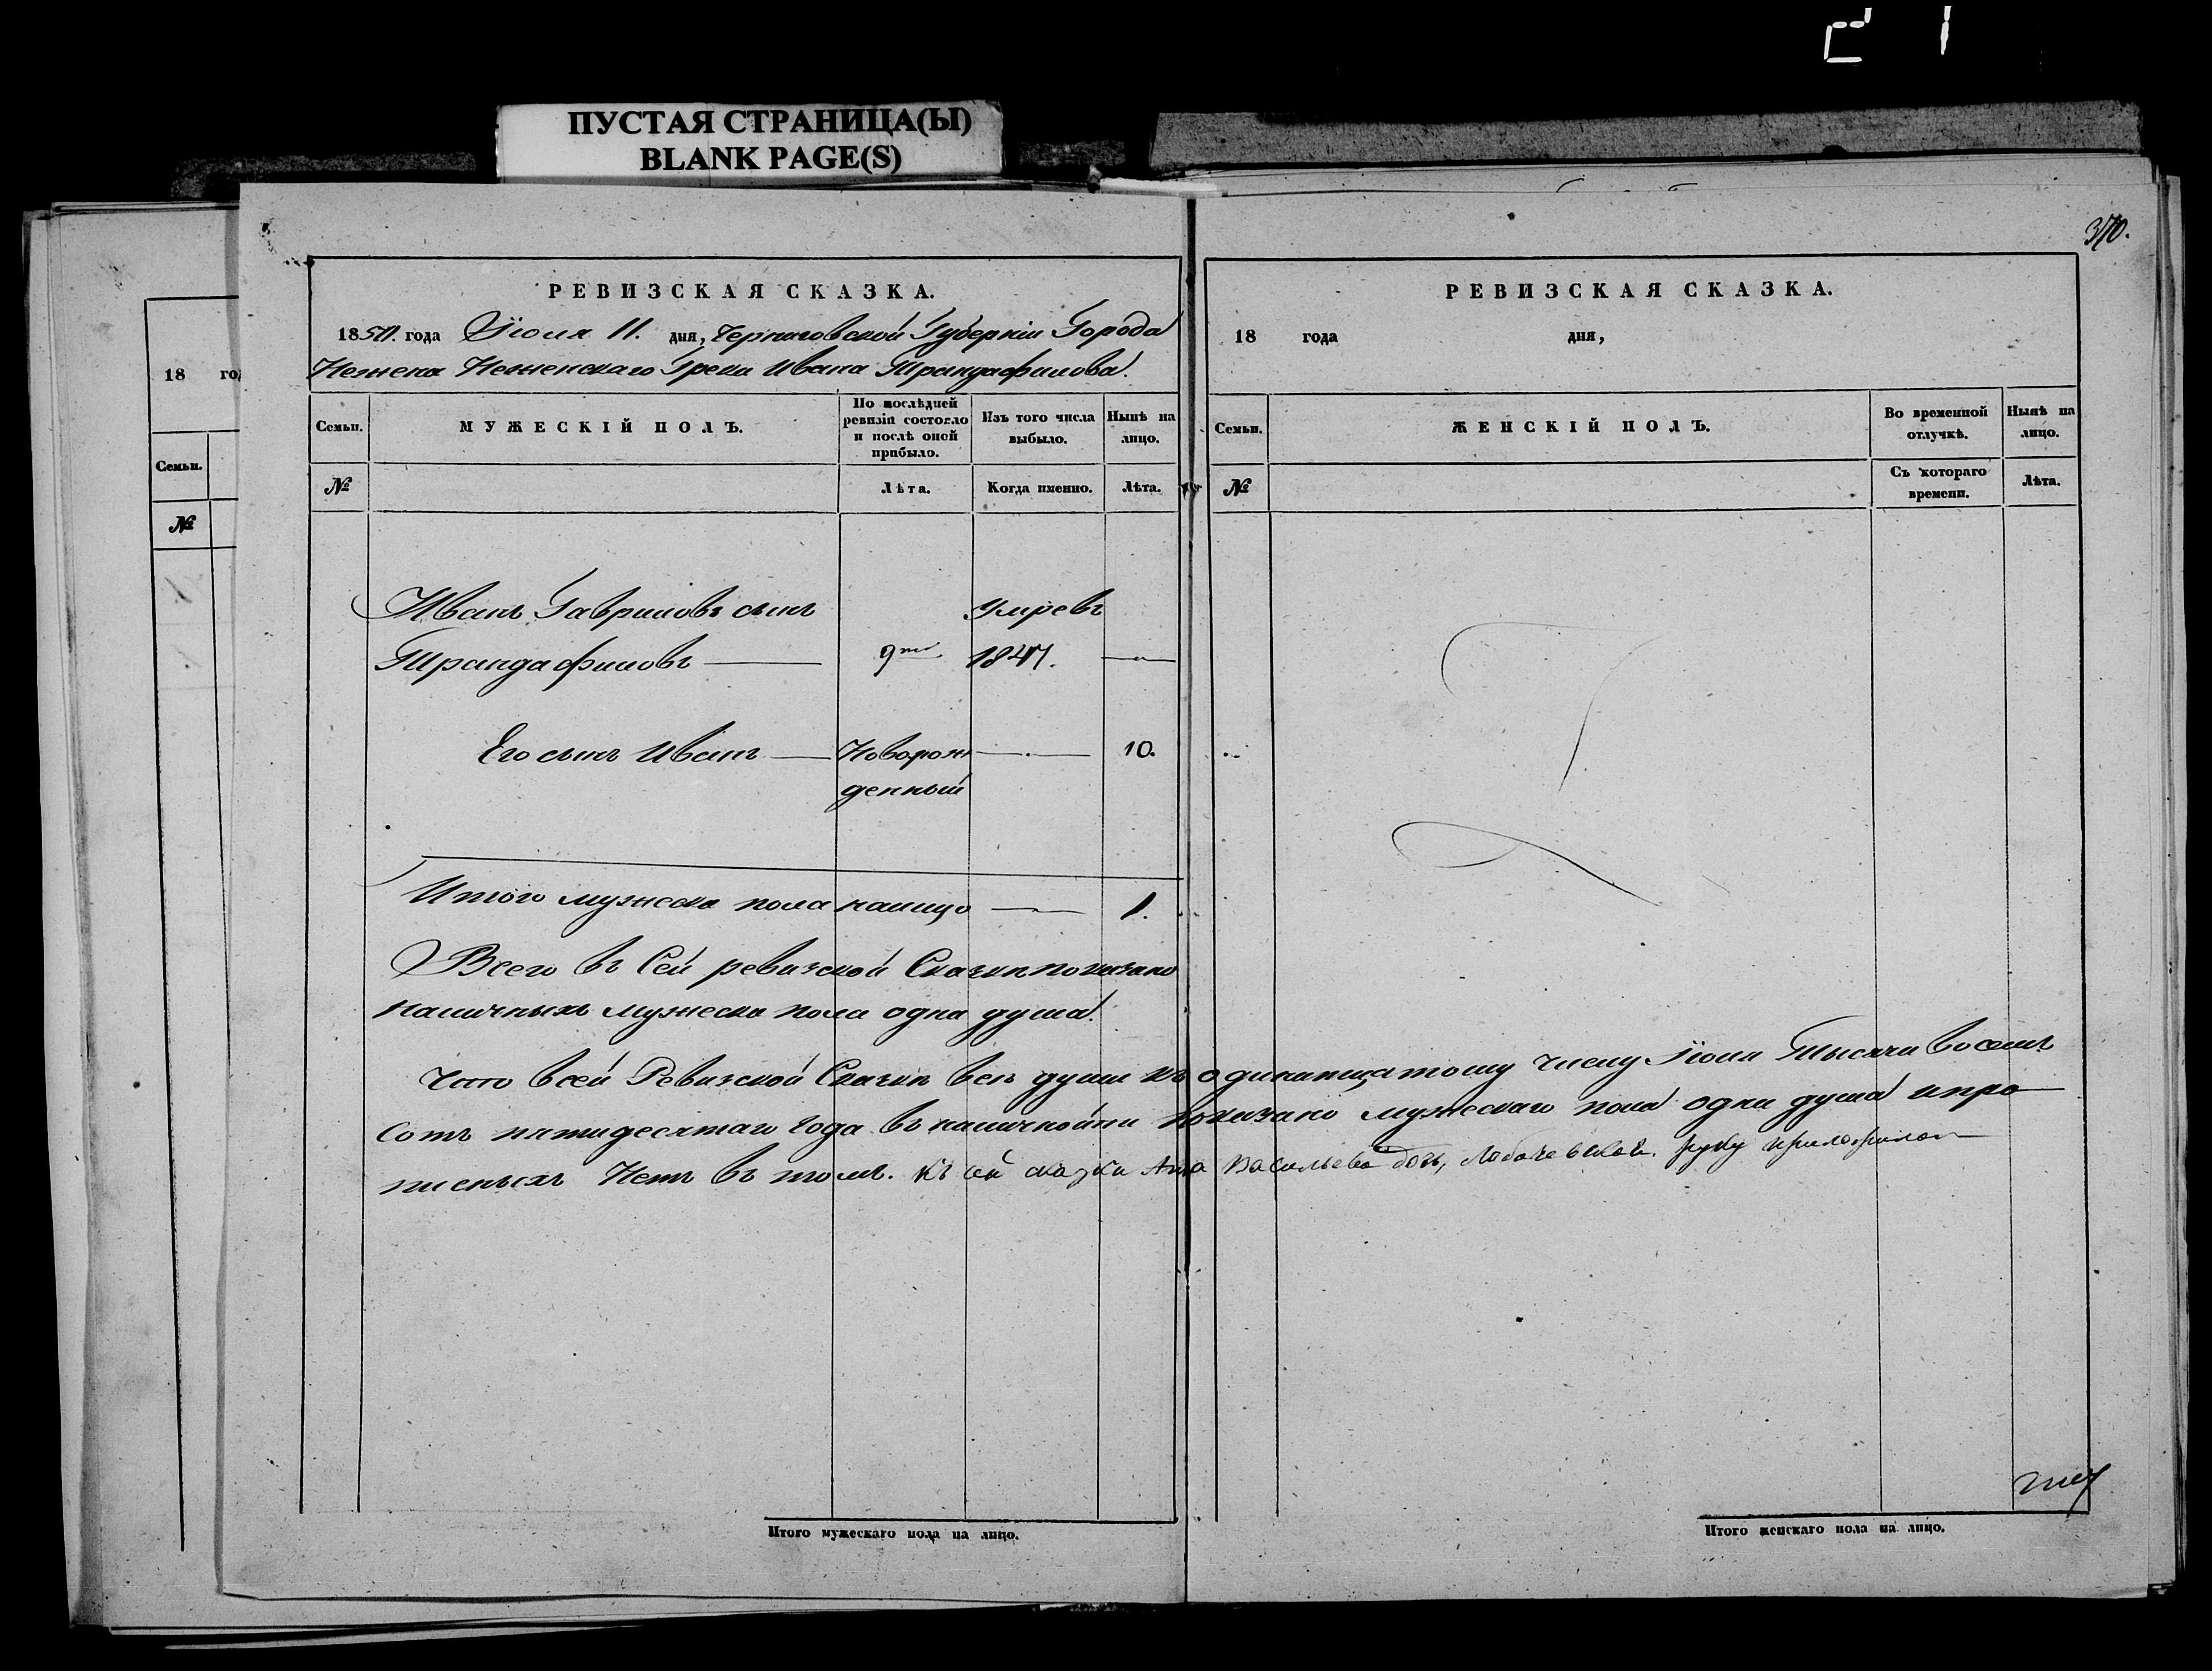 ПУСТАЯ СТРАНИЦА(Ы)
BLANK PAGE(S)
370.
18 го
Семьи.
№
РЕВИЗСКАЯ СКАЗКА.
1850. года Іюля 11. дня, Черниговской Губерніи Города
Нежена Неженскаго Грека Ивана Трандафилова.
Семьи. МУЖЕСКІЙ ПОЛЪ. По послѣдней ревизіи состояло и послѣ оной прибыло. Изъ того числа выбыло. Нынѣ на лицо.
№ Лѣта. Когда именно. Лѣта.
Иванъ Гавриловъ сынъ Умревъ
Трандафиловъ — 9 1847. —
Его сынъ Иванъ — Новорож — 10.
денный
Итого мужеска пола налицо — 1.
Всего въ Сей ревизской Сказки показано
наличныхъ мужеска пола одна душа.
РЕВИЗСКАЯ СКАЗКА.
18 года дня,
Семьи. ЖЕНСКІЙ ПОЛЪ. Во временной отлучкѣ. Нынѣ на лицо.
№ Съ котораго времени. Лѣта.
Что всей Ревизской Сказки всѣ души къ одинатцатому числу Іюля Тысяча восемъ
сотъ пятидесятаго года въ наличности показано мужескаго пола одна душа и про
писныхъ Нетъ въ томъ. Къ сей сказки Анна Васильева дочь, Лобачевская. руку приложила
Итого мужескаго пола на лицо.
Итого женскаго пола на лицо.